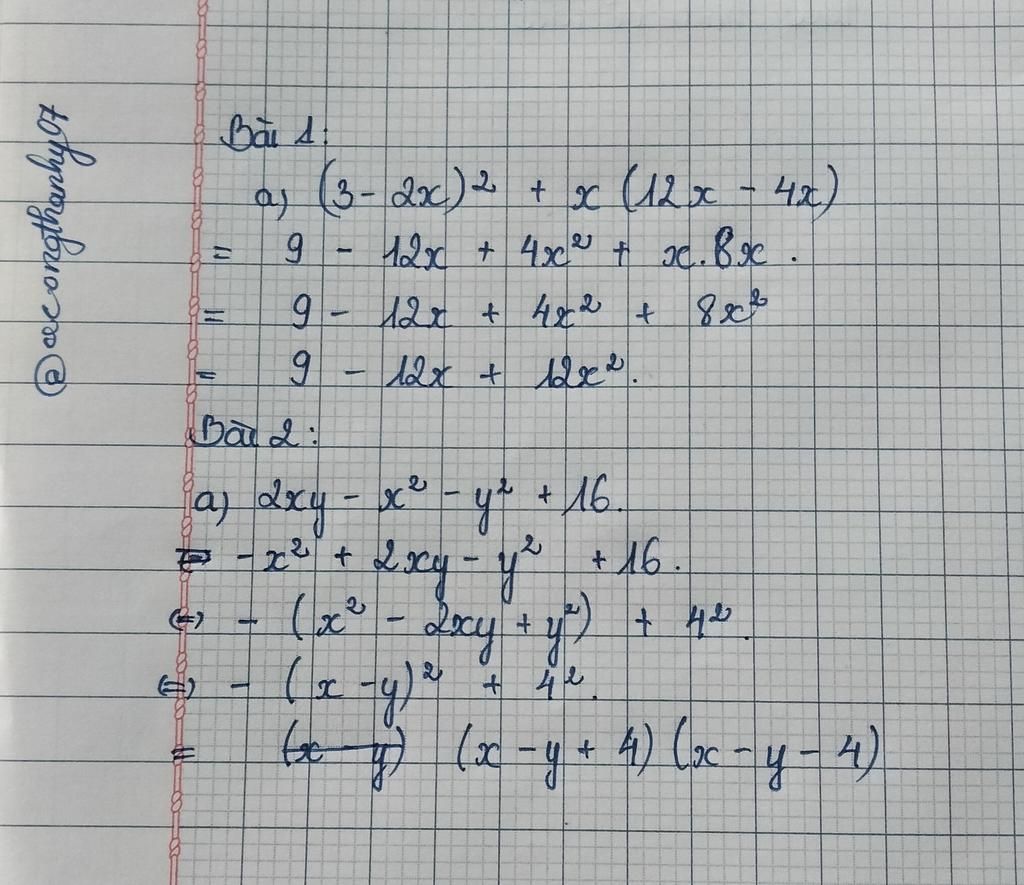 @aecongthanhy07
Bài 1:
a) (3 - 2x)² + x (12x - 4x)
= 9 - 12x + 4x² + x.8x.
= 9 - 12x + 4x² + 8x²
= 9 - 12x + 12x².
Bài 2:
a) 2xy - x² - y² + 16.
= - x² + 2xy - y² + 16.
(=) - (x² - 2xy + y²) + 4².
(=) - (x - y)² + 4².
= (x - y) (x - y + 4) (x - y - 4)